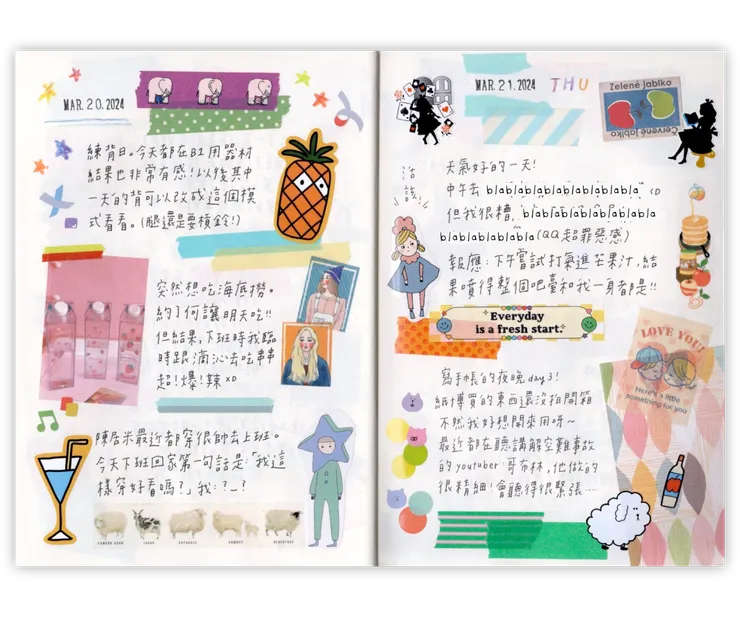 MAR. 20. 2024
練背日。今天都在B1用器材
結果也非常有感!以後其中
一天的背可以改成這個模
式看看。(腿還是要槓鈴!)
突然想吃海底撈。
約了何讓明天吃!!
但結果,下班時我臨
時跟滿沁去吃串串
超!爆!辣 xD
陳居米最近都穿很帥去上班。
今天下班回家第一句話是:「我這
樣穿好看嗎?」我:?_?
MAR. 21. 2024 THU
Zelené jablko
Červené jablko
天氣好的一天!
中午去 blablablablablablablabla
但我很糟, blablablablablablabla
blablablablabla(QQ超罪惡感)
報應:下午嘗試打氣進芒果汁,結
果噴得整個吧臺和我一身都是!!
Everyday
is a fresh start.
LOVE YOU!
Here's a little
something for you
寫手帳的夜晚 day 3!
紙博買的東西還沒拍開箱
不然我好想開來用呀~
最近都在聽講解空難事故
的 youtuber 哥布林,他做的
很精細!會聽得很緊張……